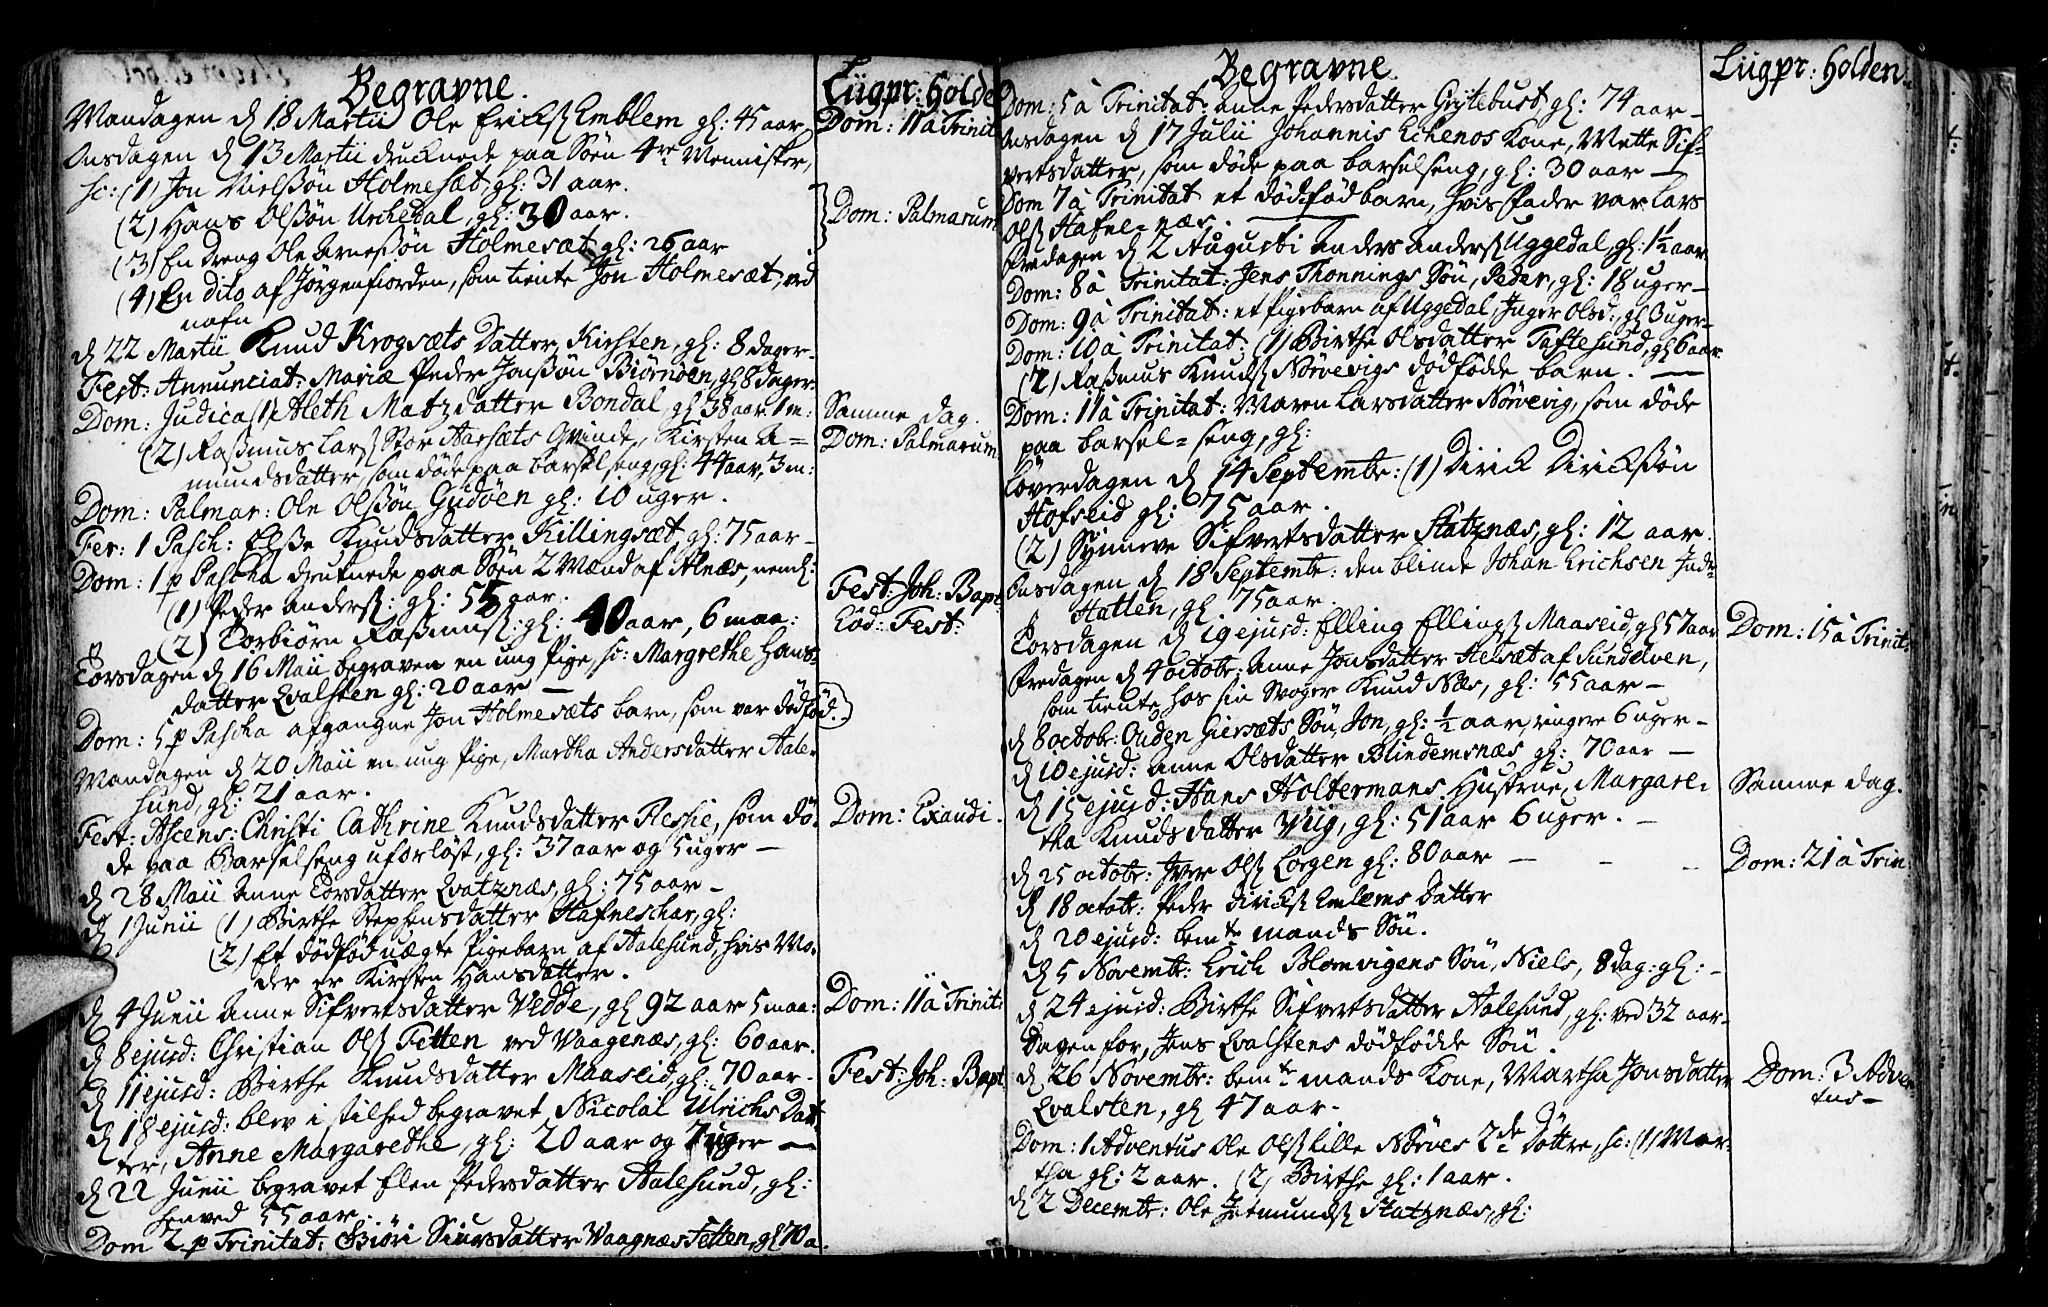 Begravne.
Liigpr: holde
Mandagen d 18 Martii Ole Ericks Emblem gl: 45 aar
Dom: 11 à Trinit
Onsdagen d 13 Martii drucknede paa Söen 4re Mennisker,
sc: (1) Jon Nielssøn Holmesæt, gl: 31 aar.
(2) Hans Olssøn Urchedal, gl: 30 aar.
Dom: Palmarum
(3) En dreng Ole Arnessøn Holmesæt gl: 26 aar
(4) En dito af Jørgenfiorden, som tiente Jon Holmesæt, ved
nafn
d 22 Martii Knud Krogsæts Datter, Kirsten, gl: 8 dager-
Fest: Annunciat: Mariæ Peder Jonssøn Biørnøen, gl 8 dager
Dom: Judica (1) Aleth Matzdatter Bondal, gl 38 aar 1 m:
Samme dag.
(2) Rassmus Lars Stor Aarsæts Qvinde, Kirsten A=
Dom: Palmarum
mundsdatter, som døde paa barselseng, gl: 44 aar, 3 m:
Dom: Palmar: Ole Olssøn Gudøen gl: 10 uger.
Fer: 1 Pasch: Elsse Knudsdatter Killingsæt, gl: 75 aar-
Dom: 1 p Pascha druknede paa Söen 2 Mænd af Alnæs, neml:
Fest: Joh: Bapt:
(1) Peder Anders: gl: 55 aar.
Eod: Fest:
(2) Torbiørn Rassmus: gl: 40 aar, 6 maa:
Torsdagen d 16 Maii begraven en ung Pige, sc: Margrethe Hans-
datter Qvalsten gl: 20 aar -
Dom: 5 p Pascha afgangne Jon Holmesæts barn, som var dødfød.
Mandagen d 20 Maii en ung Pige, Martha Andersdatter Aale-
sund, gl: 21 aar.
Dom: Exaudi.
Fest: Ascens: Christi Cathrine Knudsdatter Ressie, som dø-
de paa Barselseng uforløst, gl: 37 aar og 5 uger -
d 28 Maii Anne Torsdatter Qvatznæs, gl: 75 aar -
d 1 Junii (1) Birthe Stephensdatter Hafneschar, gl:
(2) Et dødfød uægte Pigebarn af Aalesund, hvis Mo-
der er Kirsten Hansdatter.
d 4 Junii Anne Sifvertsdatter Vedde, gl 92 aar 5 maa:
Dom: 11 à Trinit:
d 8 ejusd: Christian Ols Fetten ved Vaagenæs, gl: 60 aar.
d 11 ejusd: Birthe Knudsdatter Maaseid, gl: 70 aar-
Fest: Joh: Bapt
d 18 ejusd: blev i stilhed begravet Nicolai Ulrichs Dat-
ter, Anne Margarethe, gl: 20 aar og 7 uger -
d 22 Junii begravet Elen Pedersdatter Aalesund, gl:
henved 55 aar.
Dom 2 p Trinitat: Biøri Siursdatter Vaagnæs Fetten, gl 70 a.
Begravne.
Liigpr: holden.
Dom: 5 à Trinitat: Anne Pedersdatter Grytebust, gl: 74 aar -
Onsdagen d 17 Julii Johannis Echenos Kone, Mette Sif-
vertsdatter, som døde paa barselseng, gl: 30 aar -
Dom 7 à Trinitat et dødfød barn, hvis Fader var Lars
Ols Hafne-næs.
Fredagen d 2 Augusti Anders Anders Uggedal, gl: 1 1/2 aar
Dom: 8 à Trinitat: Jens Thonnings Søn, Peder, gl: 18 uger -
Dom: 9 à Trinitat: et Pigebarn af Uggedal, Inger Olsd: gl 3 uger-
Dom: 10 à Trinitat: (1) Birthe Olsdatter Taftesund, gl 6 aar
(2) Rassmus Knuds Nørvevigs dødfødde barn.
Dom: 11 à Trinitat: Maren Larsdatter Nørvevig, som døde
paa barsel-seng, gl:
Løverdagen d 14 Septembr: (1) Dirick Dirickssøn
Hofseid gl: 75 aar.
(2) Synneve Sifvertsdatter Statznæs, gl: 12 aar.
Onsdagen d 18 Septembr: den blinde Johan Erichsen Inde-
Hatten, gl 75 aar.
Torsdagen d 19 ejusd: Elling Ellings Maaseid, gl 57 aar
Dom: 15 à Trinit:
Fredagen d 4 octobr: Anne Jonsdatter Helsæt af Sundelven,
som tiente hos sin Svoger Knud Næs, gl: 55 aar -
d 8 octobr: Ouden Giersæts Søn, Jon, gl: 1/2 aar, ringere 6 uger -
d 10 ejusd: Anne Olsdatter Blindemsnæs gl: 70 aar -
d 15 ejusd: Hans Holtermans Hustrue, Margare-
Samme dag.
tha Knudsdatter Viig, gl: 51 aar 6 uger. -
d 25 octobr: Iver Ols Lorgen gl: 80 aar -
Dom: 21 à Trin:
d 18 octobr: Peder Diricks Emlems datter
d 20 ejusd: bemte mands Søn.
d 5 Novembr: Erich Blomvigens Søn, Niels, 8 dag: gl: -
d 24 ejusd: Birthe Sifvertsdatter Aalesund, gl: ved 32 aar-
Dagen for, Jens Qvalstens dødfødde Søn.
d 26 Novembr: bemte mands Kone, Martha Jonsdatter
Dom: 3 Adven
Qvalsten, gl 47 aar.
tus -
Dom: 1 Adventus Ole Ols Lille Nørves 2de Døttre, sc: (1) Mar-
tha gl: 2 aar. (2) Birthe gl: 1 aar.
d 2 Decembr: Ole Jetmunds Statznæs, gl: